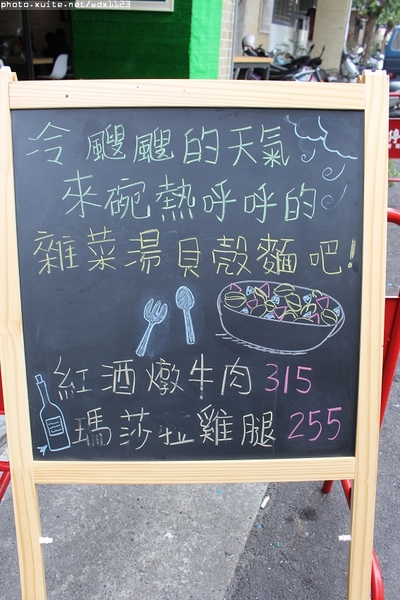 photo.xuite.net/wdx1123
冷颼颼的天氣
來碗熱呼呼的
雜菜湯貝殼麵吧!
紅酒燉牛肉 315
瑪莎拉雞腿 255